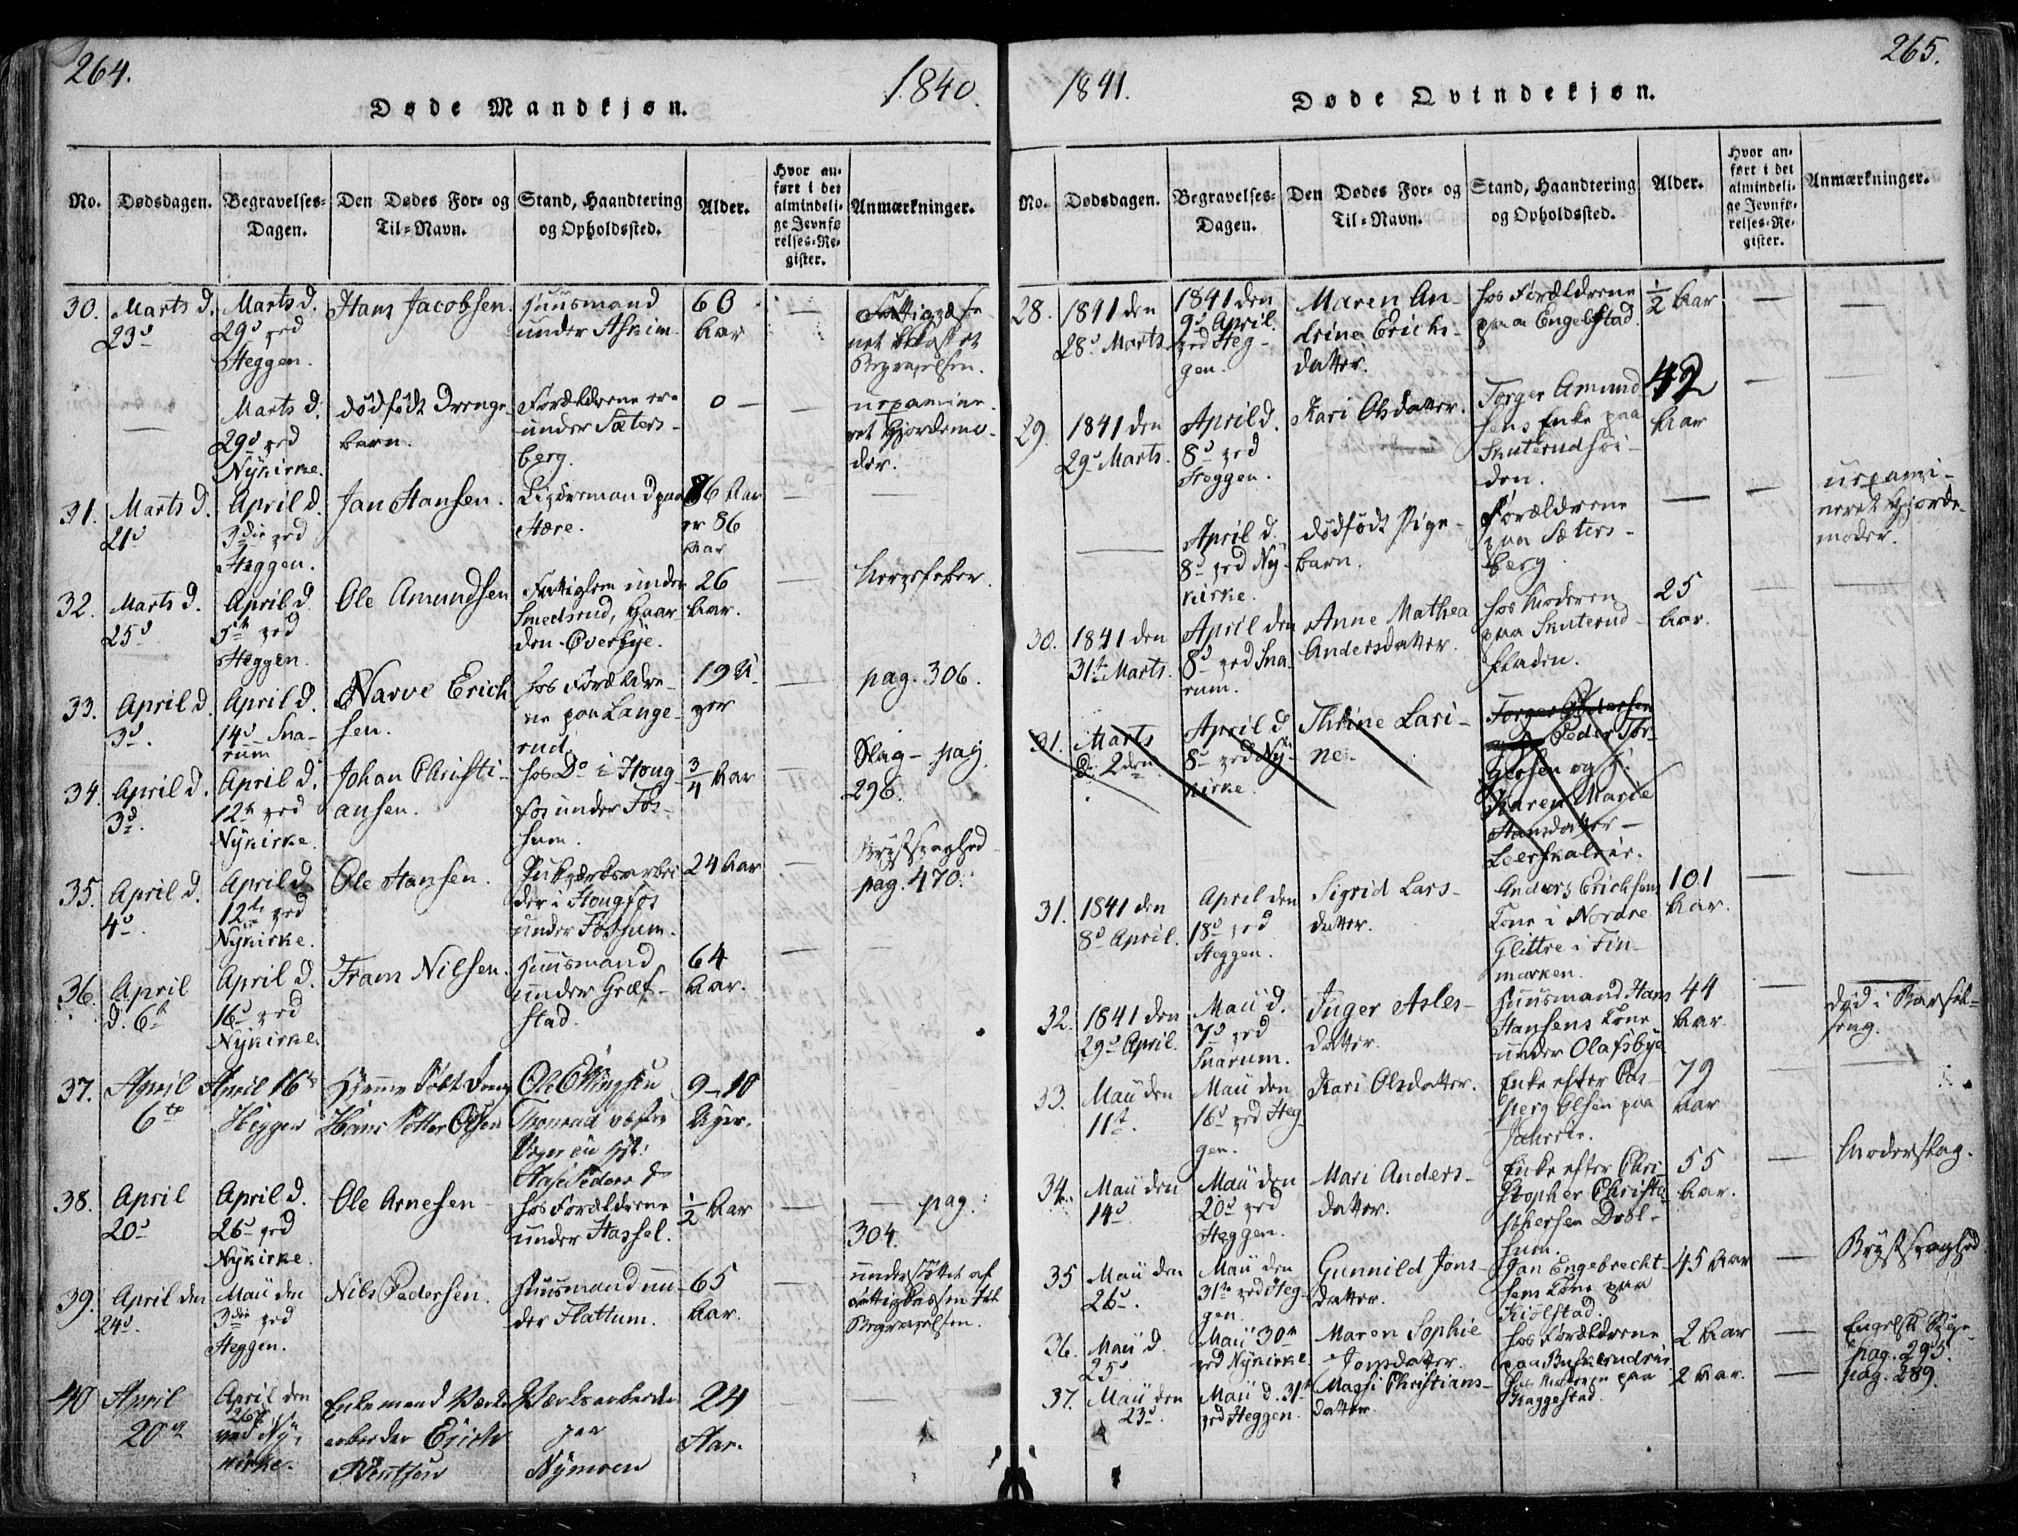 264.
1840.
Døde Mandkjøn.
No.
Dødsdagen.
Begravelses-
Dagen.
Den Dødes For- og
Til-Navn.
Stand, Haandtering
og Opholdssted.
Alder.
Hvor an-
ført i det
almindeli-
ge Jevnfø
relses-Re-
gister.
Anmærkninger.
30.
Marts d.
23d
Marts d.
29d ved
Heggen.
Hans Jacobsen.
Huusmand
under Askim.
60
Aar
Begravelsen.
Marts d.
29d ved
Nykirke.
dödfödt Drenge-
barn.
Forældrene ere
under Sæters-
berg.
0
31.
Marts d.
21d
April d.
3die ved
Heggen.
Jan Hansen.
86 Aar
er 86
Aar
32.
Marts d.
25d
April d.
5te ved
Heggen.
Ole Amundsen
Fattiglem under
Smedsrud, Gaar-
den Overbye.
26
Aar.
33.
April d.
3d.
April d.
14d Sna-
rum
Narve Erich
sen.
hos Forældre-
ne paa Lange-
rud.
19 U-
ger
pag. 306.
34.
April d.
3d.
April d.
12te ved
Nykirke.
Johan Christi-
ansen.
hos Do i Houg-
fos under Fos-
sum.
3/4 Aar
Slag- pag.
296.
35.
April d.
4d.
April d.
12te ved
Nykirke.
Ole Hansen.
der i Hougfos
under Fossum.
24 Aar
Brystsvaghed
pag. 470.
36.
April
d. 6te
April d.
16d ved
Nykirke.
Frans Nilsen.
Huusmand
under Græf-
stad.
64
Aar.
37.
April
6te
April 16te
Heggen
Hiemme döbt Dreng
Hans Petter Olsen
9-10
Uger.
38.
April
20d
April d.
26d ved
Nykirke.
Ole Arnesen
hos Forældrene
under Hassel.
1/2 Aar
pag:
304.
39.
April den
24d.
Maii den
3die ved
Heggen.
Nils Pedersen.
Huusmand un-
der Flattum.
65
Aar.
understöttet af
Fattigkassen til
Begravelsen.
40
April
20de
April den
26de
ved Ny-
kirke.
Enkemand Værks
arbeider Erich
Værksarbeider
paa
Nymoen
24
Aar.
1841.
265.
Døde Qvindekjøn.
No.
Dødsdagen.
Begravelses-
Dagen.
Den Dødes For- og
Til-Navn.
Stand, Haandtering
og Opholdssted.
Alder.
Hvor an-
ført i det
almindeli-
ge Jevnfø-
relses-Re-
gister.
Anmærkninger.
28.
1841 den
28d Marts
1841 den
9d April.
ved Heg-
gen.
Maren An-
drine Erichs-
datter.
hos Forældrene
paa Engelstad.
1/2 Aar
29.
1841 den
29d Marts.
April d.
8d ved
Heggen.
Kari Olsdatter.
Torger Amund
sens Enke paa
Skuterudsöi-
den.
42
Aar
April d.
8d ved Ny-
kirke.
dödfödt Pige-
barn.
Forældrene
paa Sæters-
berg.
uexami-
neret Gjorde-
moder.
30.
1841 den
31te Marts.
April den
8d ved Sna-
rum.
Anne Mathea
Andersdatter.
hos Moderen
paa Skuterud-
fladen.
25
Aar.
31.
Marts
d. 2den
April d.
8d ved Ny-
kirke.
Thrine Lari-
ne.
Torger Pedersen
Peder Tor-
gersen og H.
Karen Marie
Hansdatter-
31.
1841 den
8d April.
April den
18d ved
Heggen.
Sigrid Lars-
datter.
Anders Erichsens
Kone i Nordre
Glittre i Fin-
marken.
101
Aar.
32.
1841 den
29d April.
Maii d.
7d ved
Snarum.
Inger Asles-
datter.
Huusmand Hans
Hansens Kone
under Olafsbye
44
Aar.
död i Barsel-
seng.
33.
Maii den
11te.
Maii den
16d ved Heg-
gen.
Kari Olsdatter.
Enke efter
79
Aar
34.
Maii den
14d.
Maii den
20d ved
Heggen.
Mari Anders-
datter.
Enke efter Chri-
stopher Christo-
phersen
55
Aar.
Moderslag.
35
Maii den
26d.
Maii den
31te ved Heg-
gen.
Gunnild Jons-
datter.
Jan Engebrecht
sens Kone paa
Kiölstad.
45 Aar
Brystsvaghed
36.
Maii d.
25d
Maii 30te
ved Nykirke
Maren Sophie
Jonsdatter.
hos Forældrene
paa Buskerudeie
2 Aar
Engelsk Syge.
pag. 295.
37.
Maii den
23d.
Maii d. 31te
ved Heggen.
Massi Christians-
datter.
hos Moderen paa
Kaggestad.
2 Aar.
pag. 289.